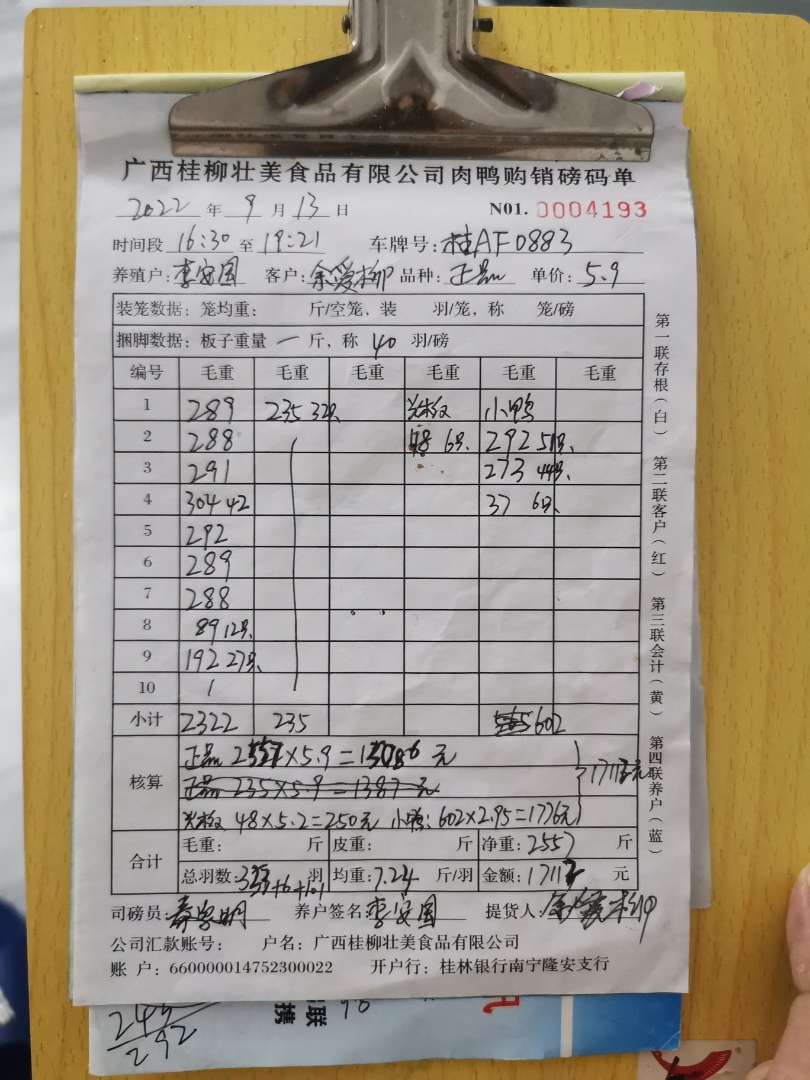 广西桂柳壮美食品有限公司肉鸭购销磅码单
2022 年 9 月 13 日 N01. 0004193
时间段 16:30 至 19:21 车牌号: 桂AF0883
养殖户: 李安国 客户: 余爱柳 品种: 正品 单价: 5.9
装笼数据: 笼均重: 斤/空笼, 装 羽/笼, 称 笼/磅
捆脚数据: 板子重量 一 斤, 称 40 羽/磅
编号 毛重 毛重 毛重 毛重 毛重 毛重
1 289 235 32只 小鸭
2 288 48 6只 292 51只
3 291 273 44只
4 304 42 37 6只
5 292
6 289
7 288
8 89 12只
9 192 27只
10 /
小计 2322 235 602
核算 正品 2557×5.9=15086 元
正品 235×5.9=1387 元
48×5.2=250元 小鸭: 602×2.95=1776元 17112元
合计 毛重: 斤 皮重: 斤 净重: 2557 斤
总羽数: 353+6+101 羽 均重: 7.24 斤/羽 金额: 17112 元
司磅员: 养户签名: 李安国 提货人: 余爱柳
公司汇款账号: 户名: 广西桂柳壮美食品有限公司
账 户: 660000014752300022 开户行: 桂林银行南宁隆安支行
第一联存根(白) 第二联客户(红) 第三联会计(黄) 第四联养户(蓝)
292